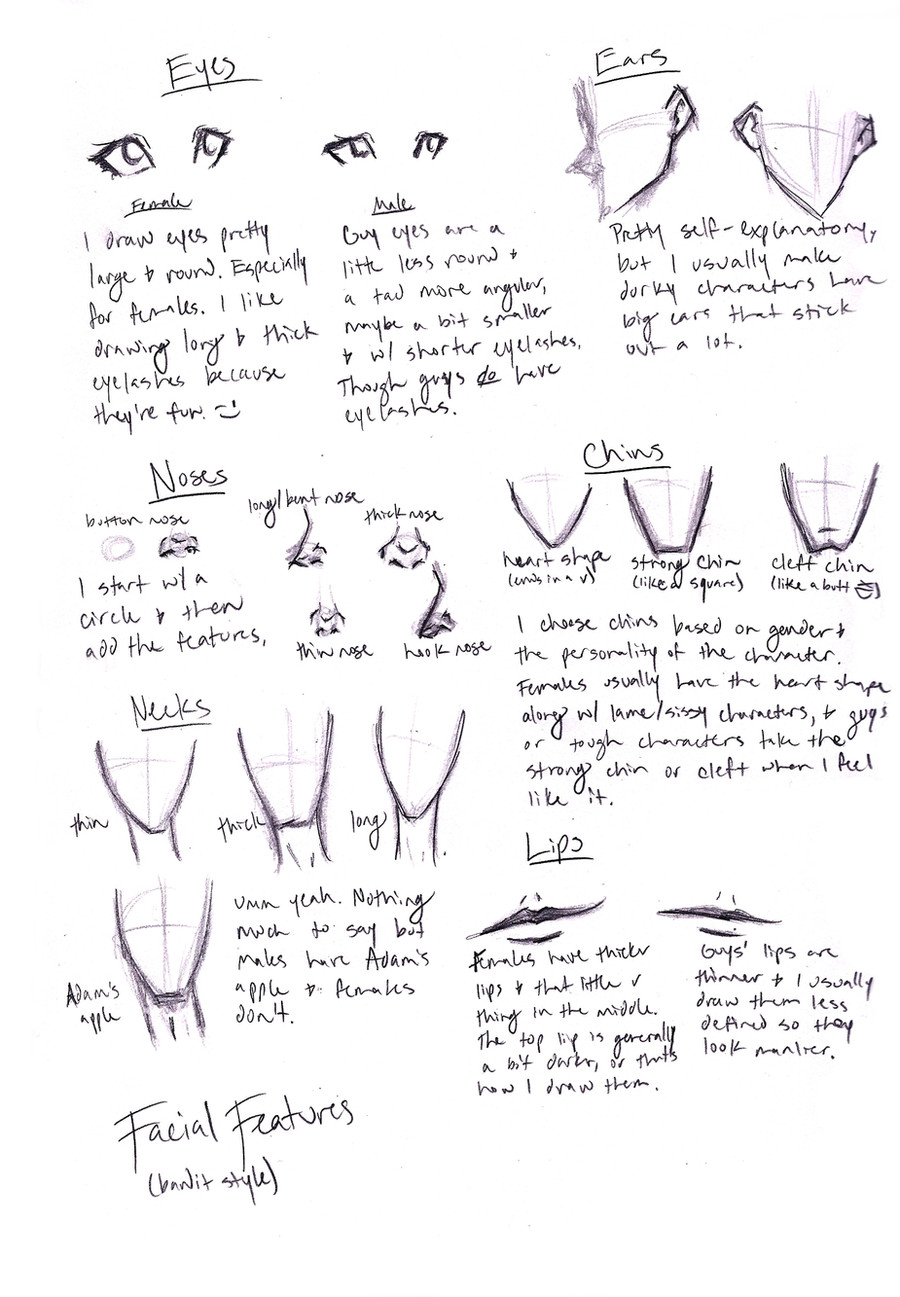 Eyes
Female
I draw eyes pretty
large & round. Especially
for females. I like
drawing long & thick
eyelashes because
they're fun. =)
Male
Guy eyes are a
little less round &
a tad more angular,
maybe a bit smaller
& w/ shorter eyelashes.
Though guys do have
eyelashes.
Ears
Pretty self-explanatory,
but I usually make
dorky characters have
big ears that stick
out a lot.
Noses
button nose
long/bent nose
thick nose
I start w/ a
circle & then
add the features.
thin nose
hook nose
Chins
heart shape
(ends in a v)
strong chin
(like a square)
cleft chin
(like a butt =))
I choose chins based on gender &
the personality of the character.
Females usually have the heart shape
along w/ lame/sissy characters, & guys
or tough characters take the
strong chin or cleft when I feel
like it.
Necks
thin
thick
long
Adam's
apple
Umm yeah. Nothing
much to say but
males have Adam's
apple & females
don't.
Lips
Females have thicker
lips & that little v
thing in the middle.
The top lip is generally
a bit darker, or that's
how I draw them.
Guys' lips are
thinner & I usually
draw them less
defined so they
look manlier.
Facial Features
(bandit style)